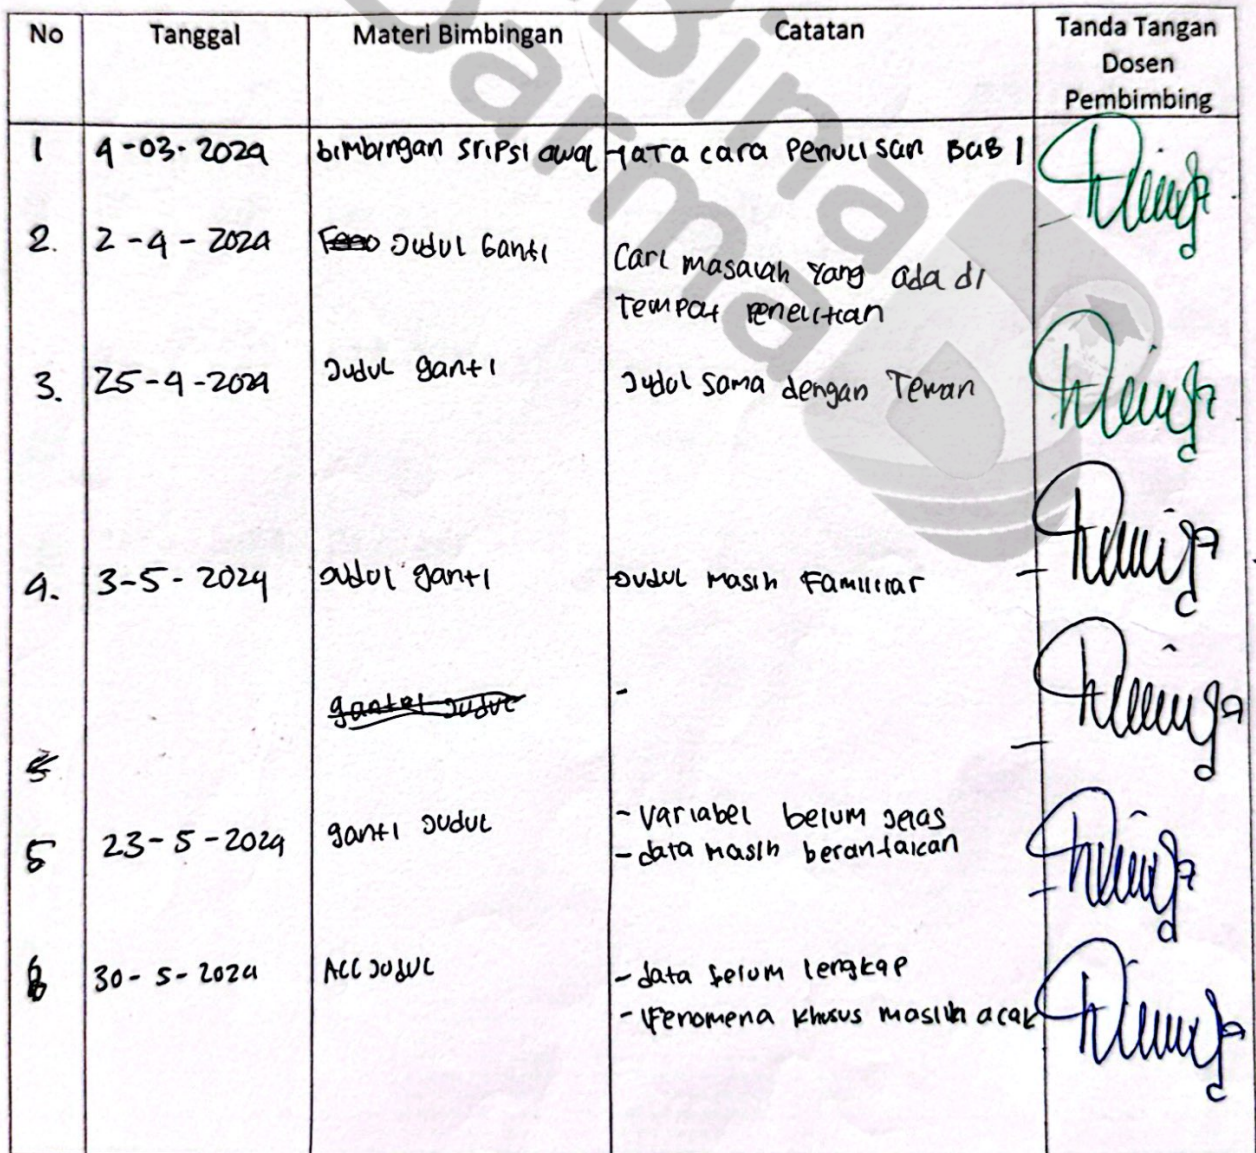 No Tanggal Materi Bimbingan Catatan Tanda Tangan
Dosen
Pembimbing
Bina
Darma
1 4-03-2024 bimbingan sripsi awal -tata cara Penulisan BAB 1
2. 2-4-2024 Judul Ganti
Cari masalah yang ada di
tempat penelitian
3. 25-4-2024 Judul ganti Judul sama dengan Teman
4. 3-5-2024 Judul ganti -Judul masih Familiar
ganti Judul -
5 23-5-2024 ganti Judul - Variabel belum jelas
- data masih berantakan
6 30-5-2024 ACC Judul - data belum lengkap
- Fenomena khusus masih acak